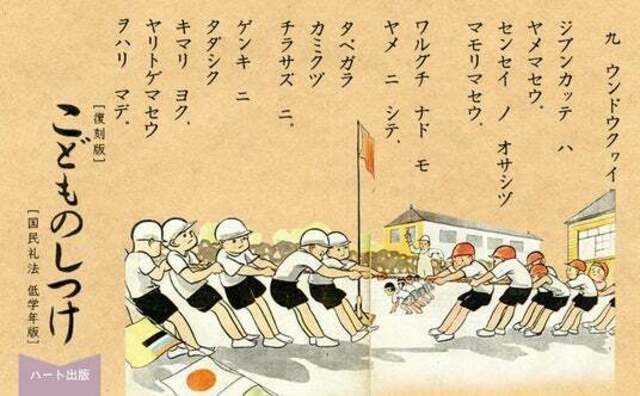 九 ウンドウクヮイ
ジブンカッテ ハ
ヤメマセウ。
センセイ ノ オサシヅ
マモリマセウ。
ワルグチ ナド モ
ヤメ ニ シテ、
タベガラ
カミクヅ
チラサズ ニ。
ゲンキ ニ
タダシク
キマリ ヨク、
ヤリトゲマセウ
ヲハリ マデ。
[復刻版]
こどものしつけ
[国民礼法 低学年版]
ハート出版